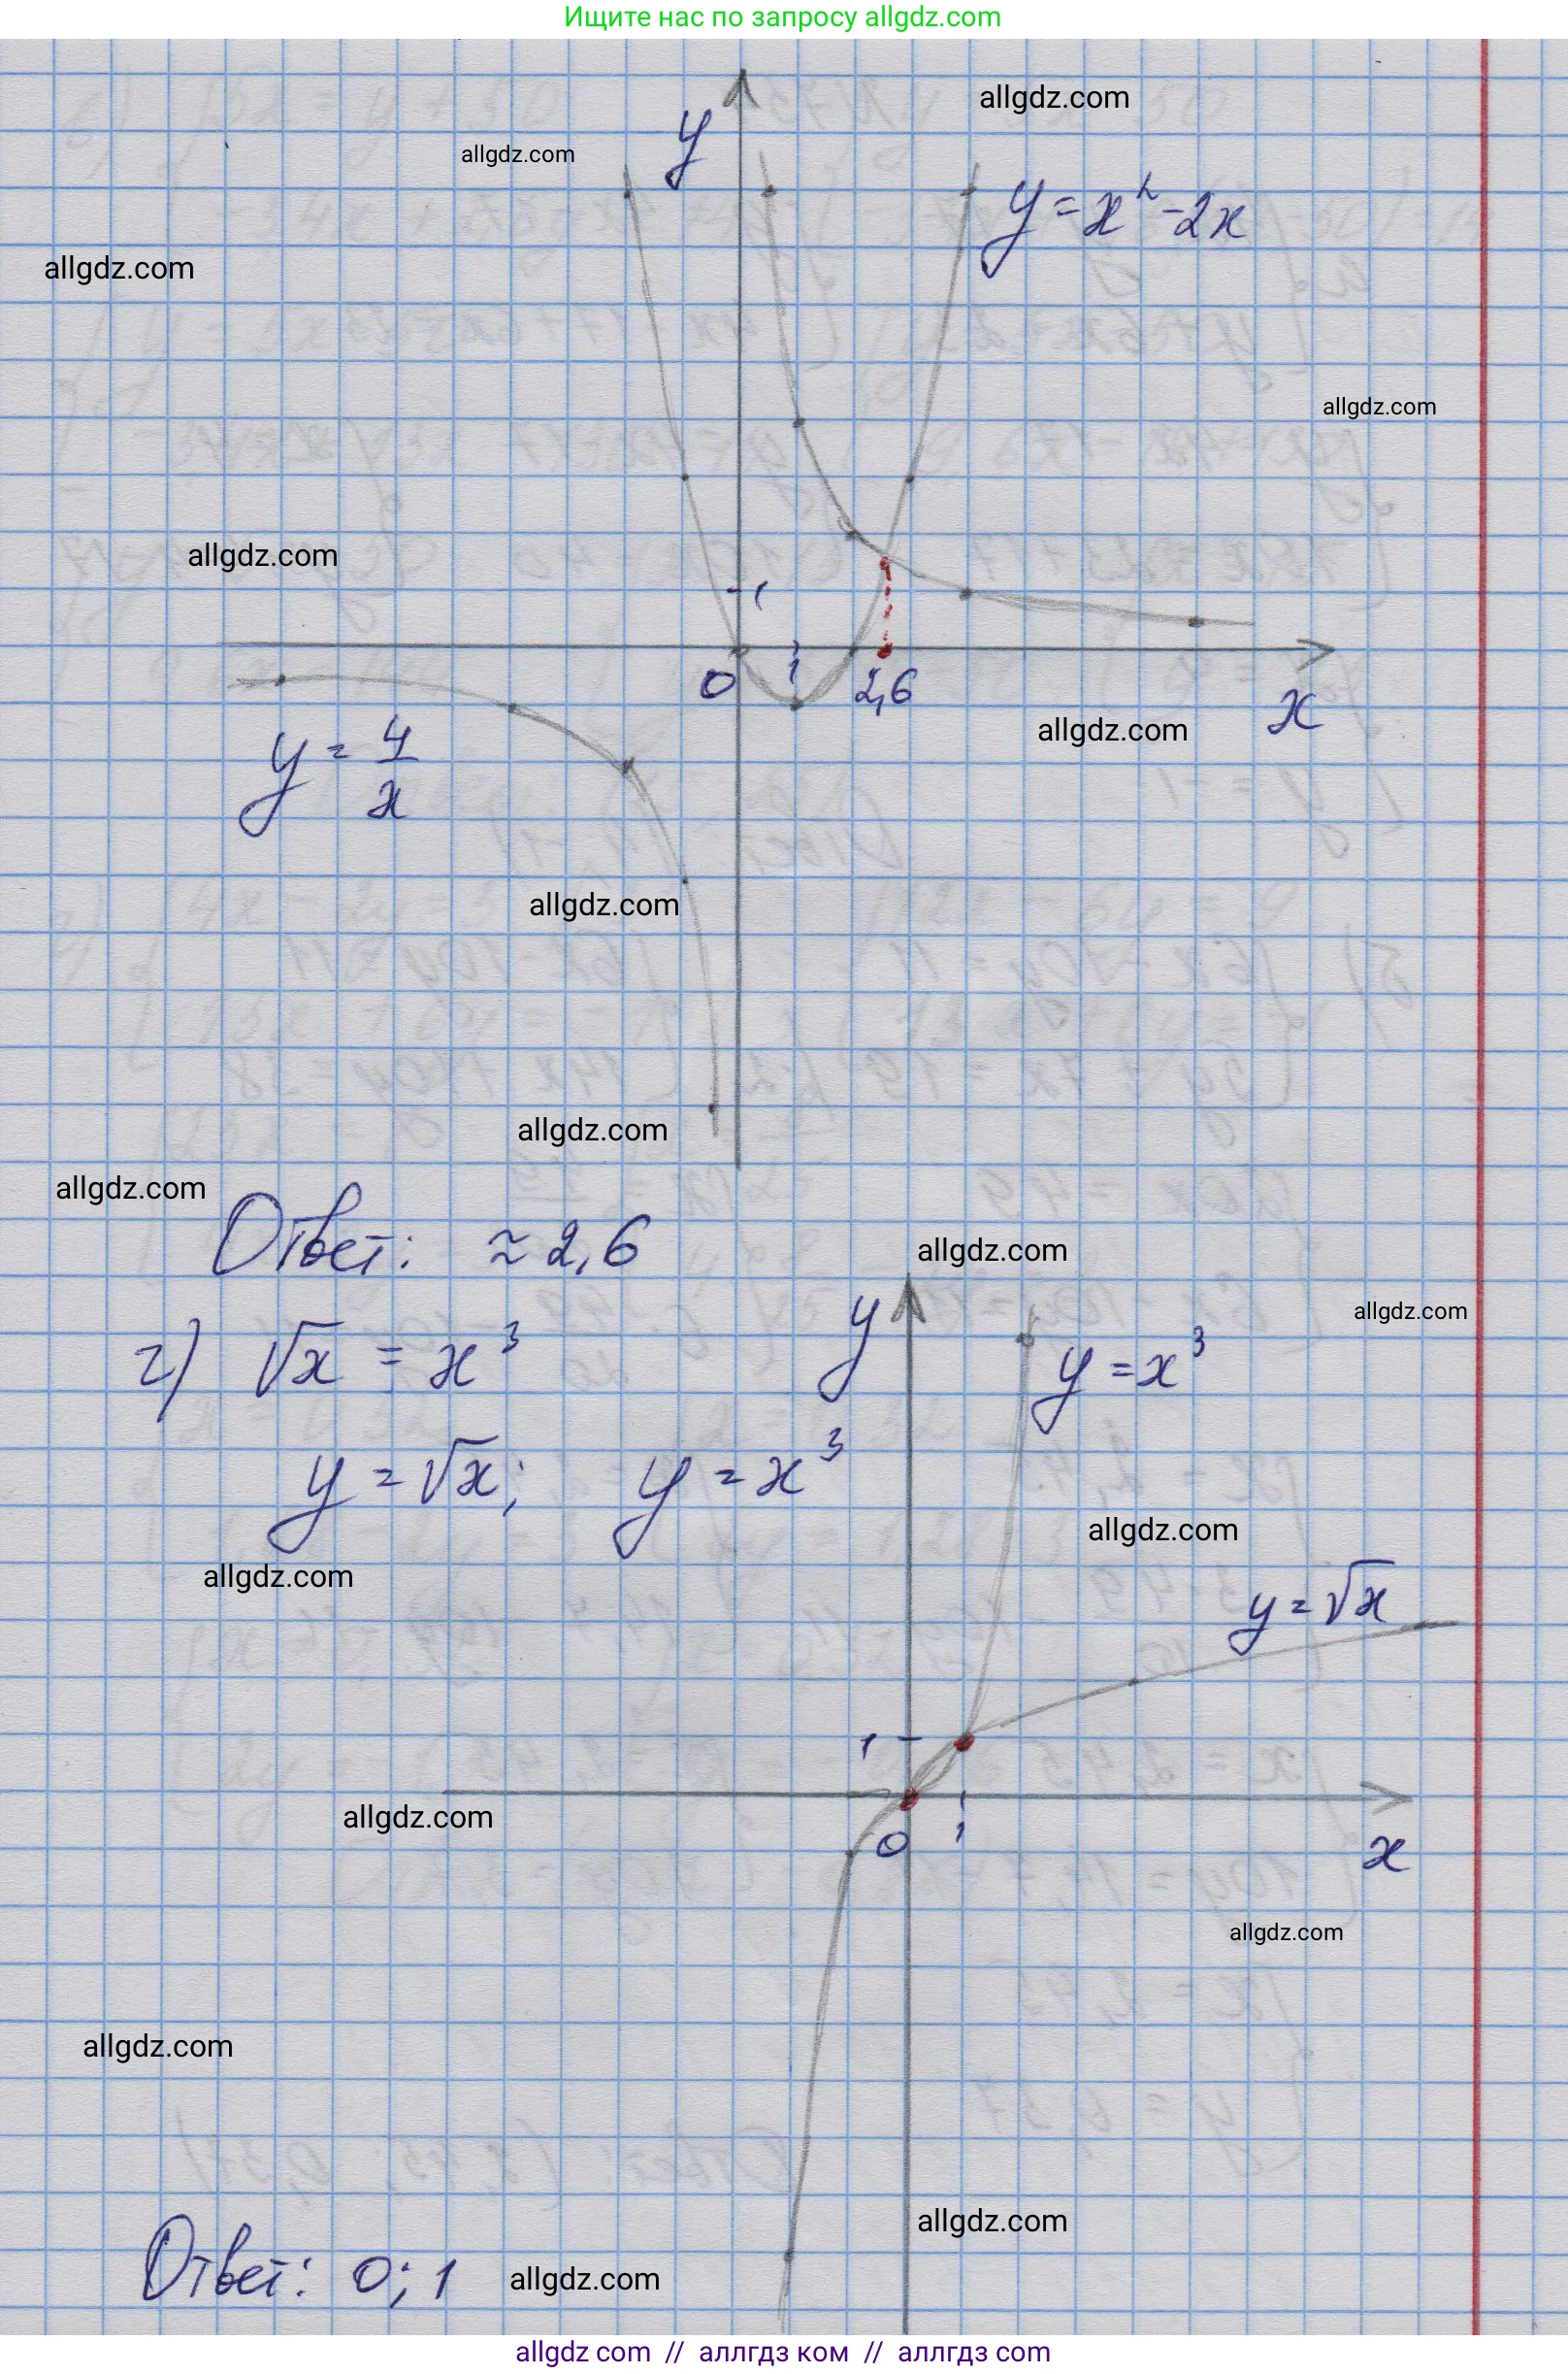 Ищите нас по запросу allgdz.com
allgdz.com
y
allgdz.com
y = x² - 2x
allgdz.com
allgdz.com
allgdz.com
1
0
1
2,6
x
allgdz.com
y = 4/x
allgdz.com
allgdz.com
allgdz.com
Ответ: ≈ 2,6
allgdz.com
y
allgdz.com
г) √x = x³
y = x³
y = √x; y = x³
allgdz.com
allgdz.com
y = √x
1
allgdz.com
0
1
x
allgdz.com
allgdz.com
allgdz.com
Ответ: 0; 1
allgdz.com
allgdz.com // аллгдз ком // аллгдз com